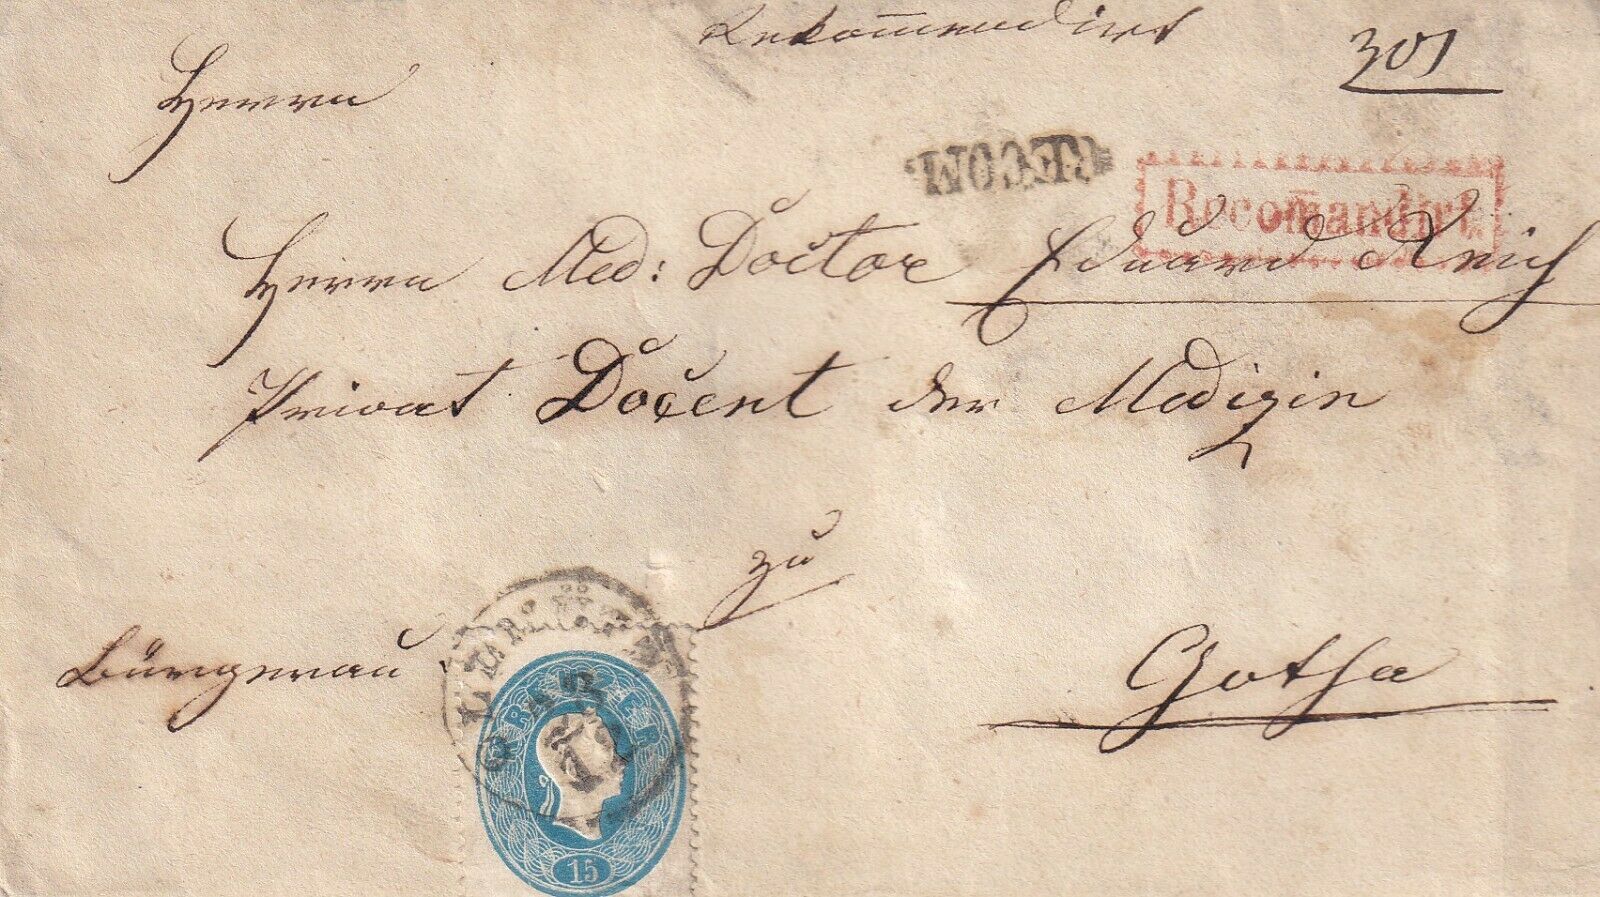 Rekom̄endirt
301
Herrn
RECOM:
Recom̄andirt
Herrn Med: Doctor Eduard Reich
Privat Docent der Medizin
zu
Bürgerau
Gotha
KREUZER
15